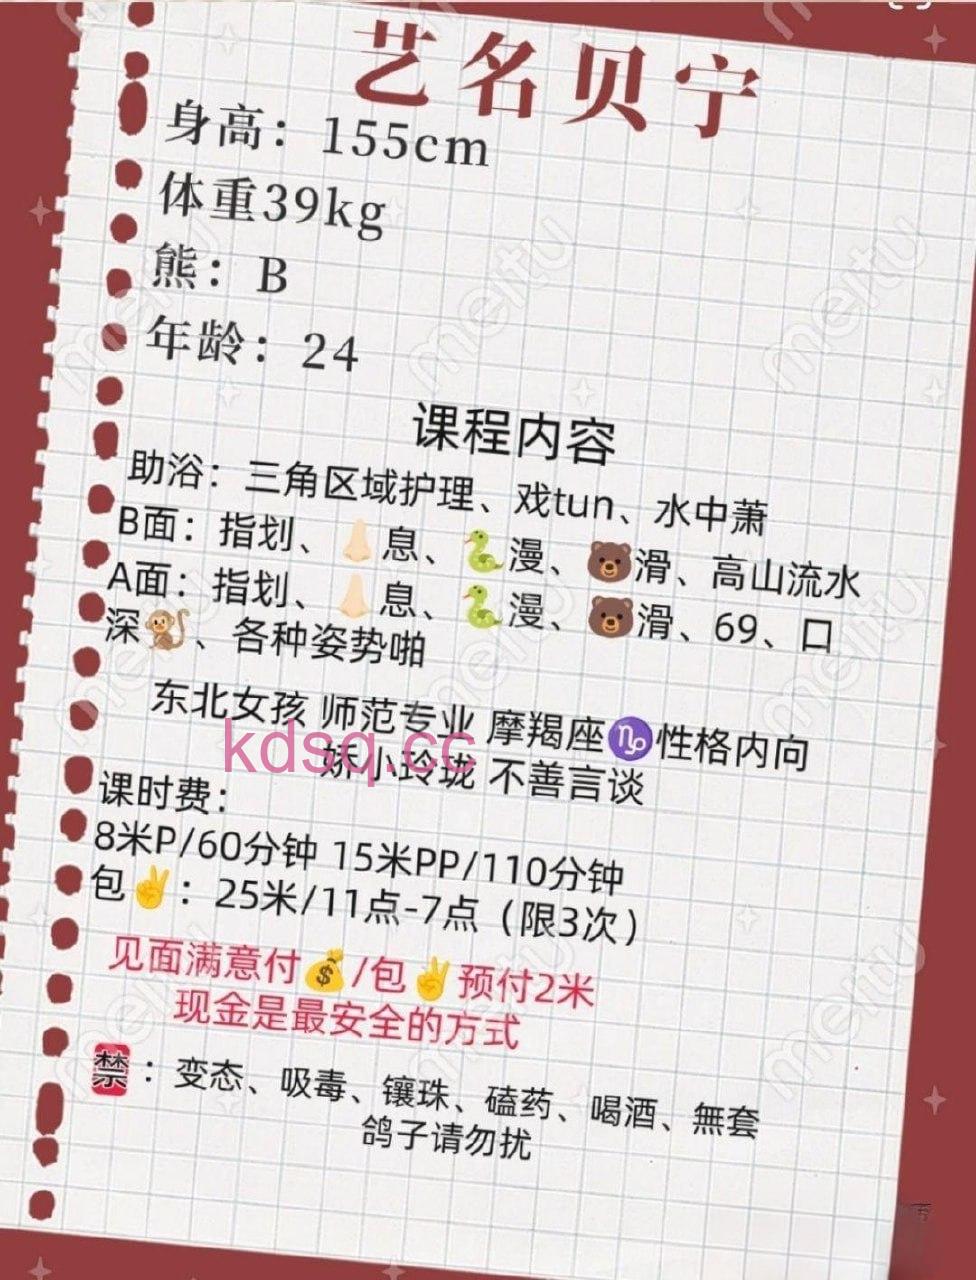 艺名贝宁
身高：155cm
体重39kg
熊：B
年龄：24
课程内容
助浴：三角区域护理、戏tun、水中萧
B面：指划、👃🏻息、🐍漫、🐻滑、高山流水
A面：指划、👃🏻息、🐍漫、🐻滑、69、口
深🐒、各种姿势啪
东北女孩 师范专业 摩羯座♑性格内向
娇小玲珑 不善言谈
kdsq.cc
课时费：
8米P/60分钟 15米PP/110分钟
包✌️：25米/11点-7点（限3次）
见面满意付💰/包✌️预付2米
现金是最安全的方式
禁：变态、吸毒、镶珠、磕药、喝酒、無套
鸽子请勿扰
meitu
meitu
meitu
meitu
meitu
meitu
meitu
meitu
meitu